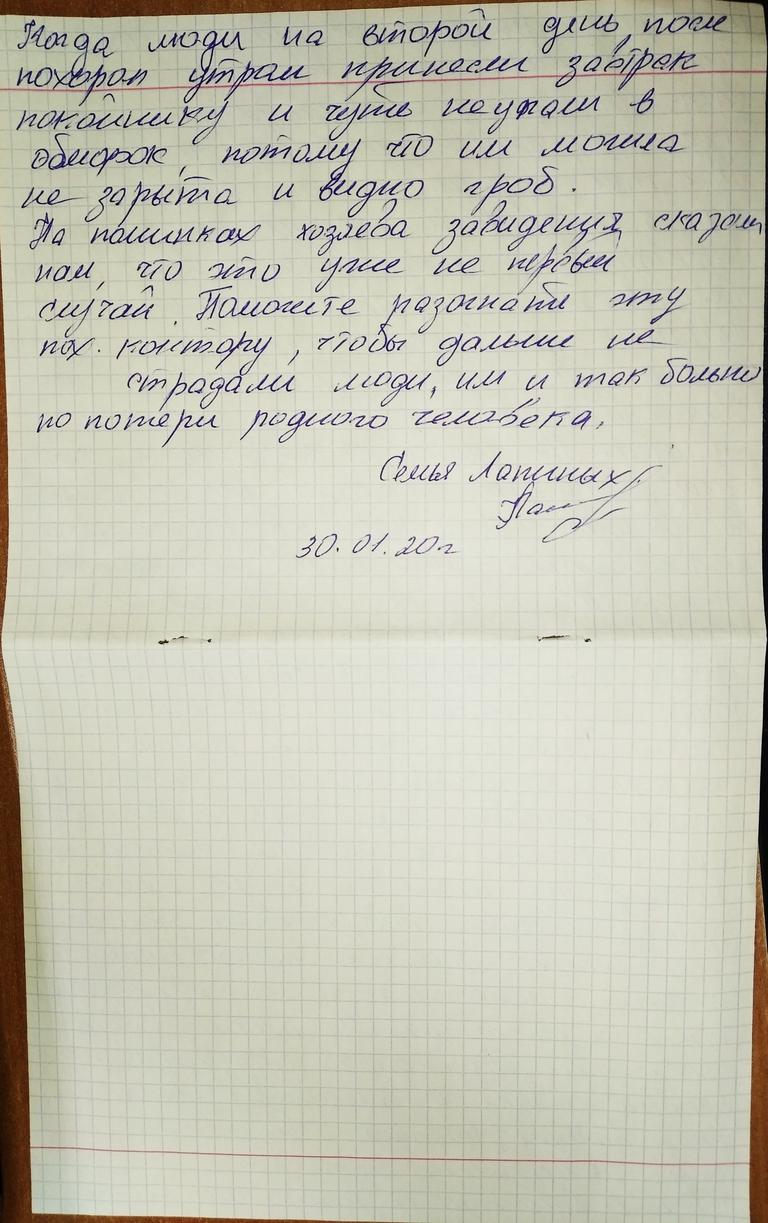 Когда люди на второй день, после
похорон утром принесли завтрак
покойнику и чуть не упали в
обморок, потому что им могила
не зарыта и видно гроб.
На поминках хозяева завидения сказали
нам, что это уже не первый
случай. Поможите разогнать эту
пох. контору, чтобы дальше не
страдали люди, им и так больно
по потери родного человека.
Семья Лапиных
30.01.20г